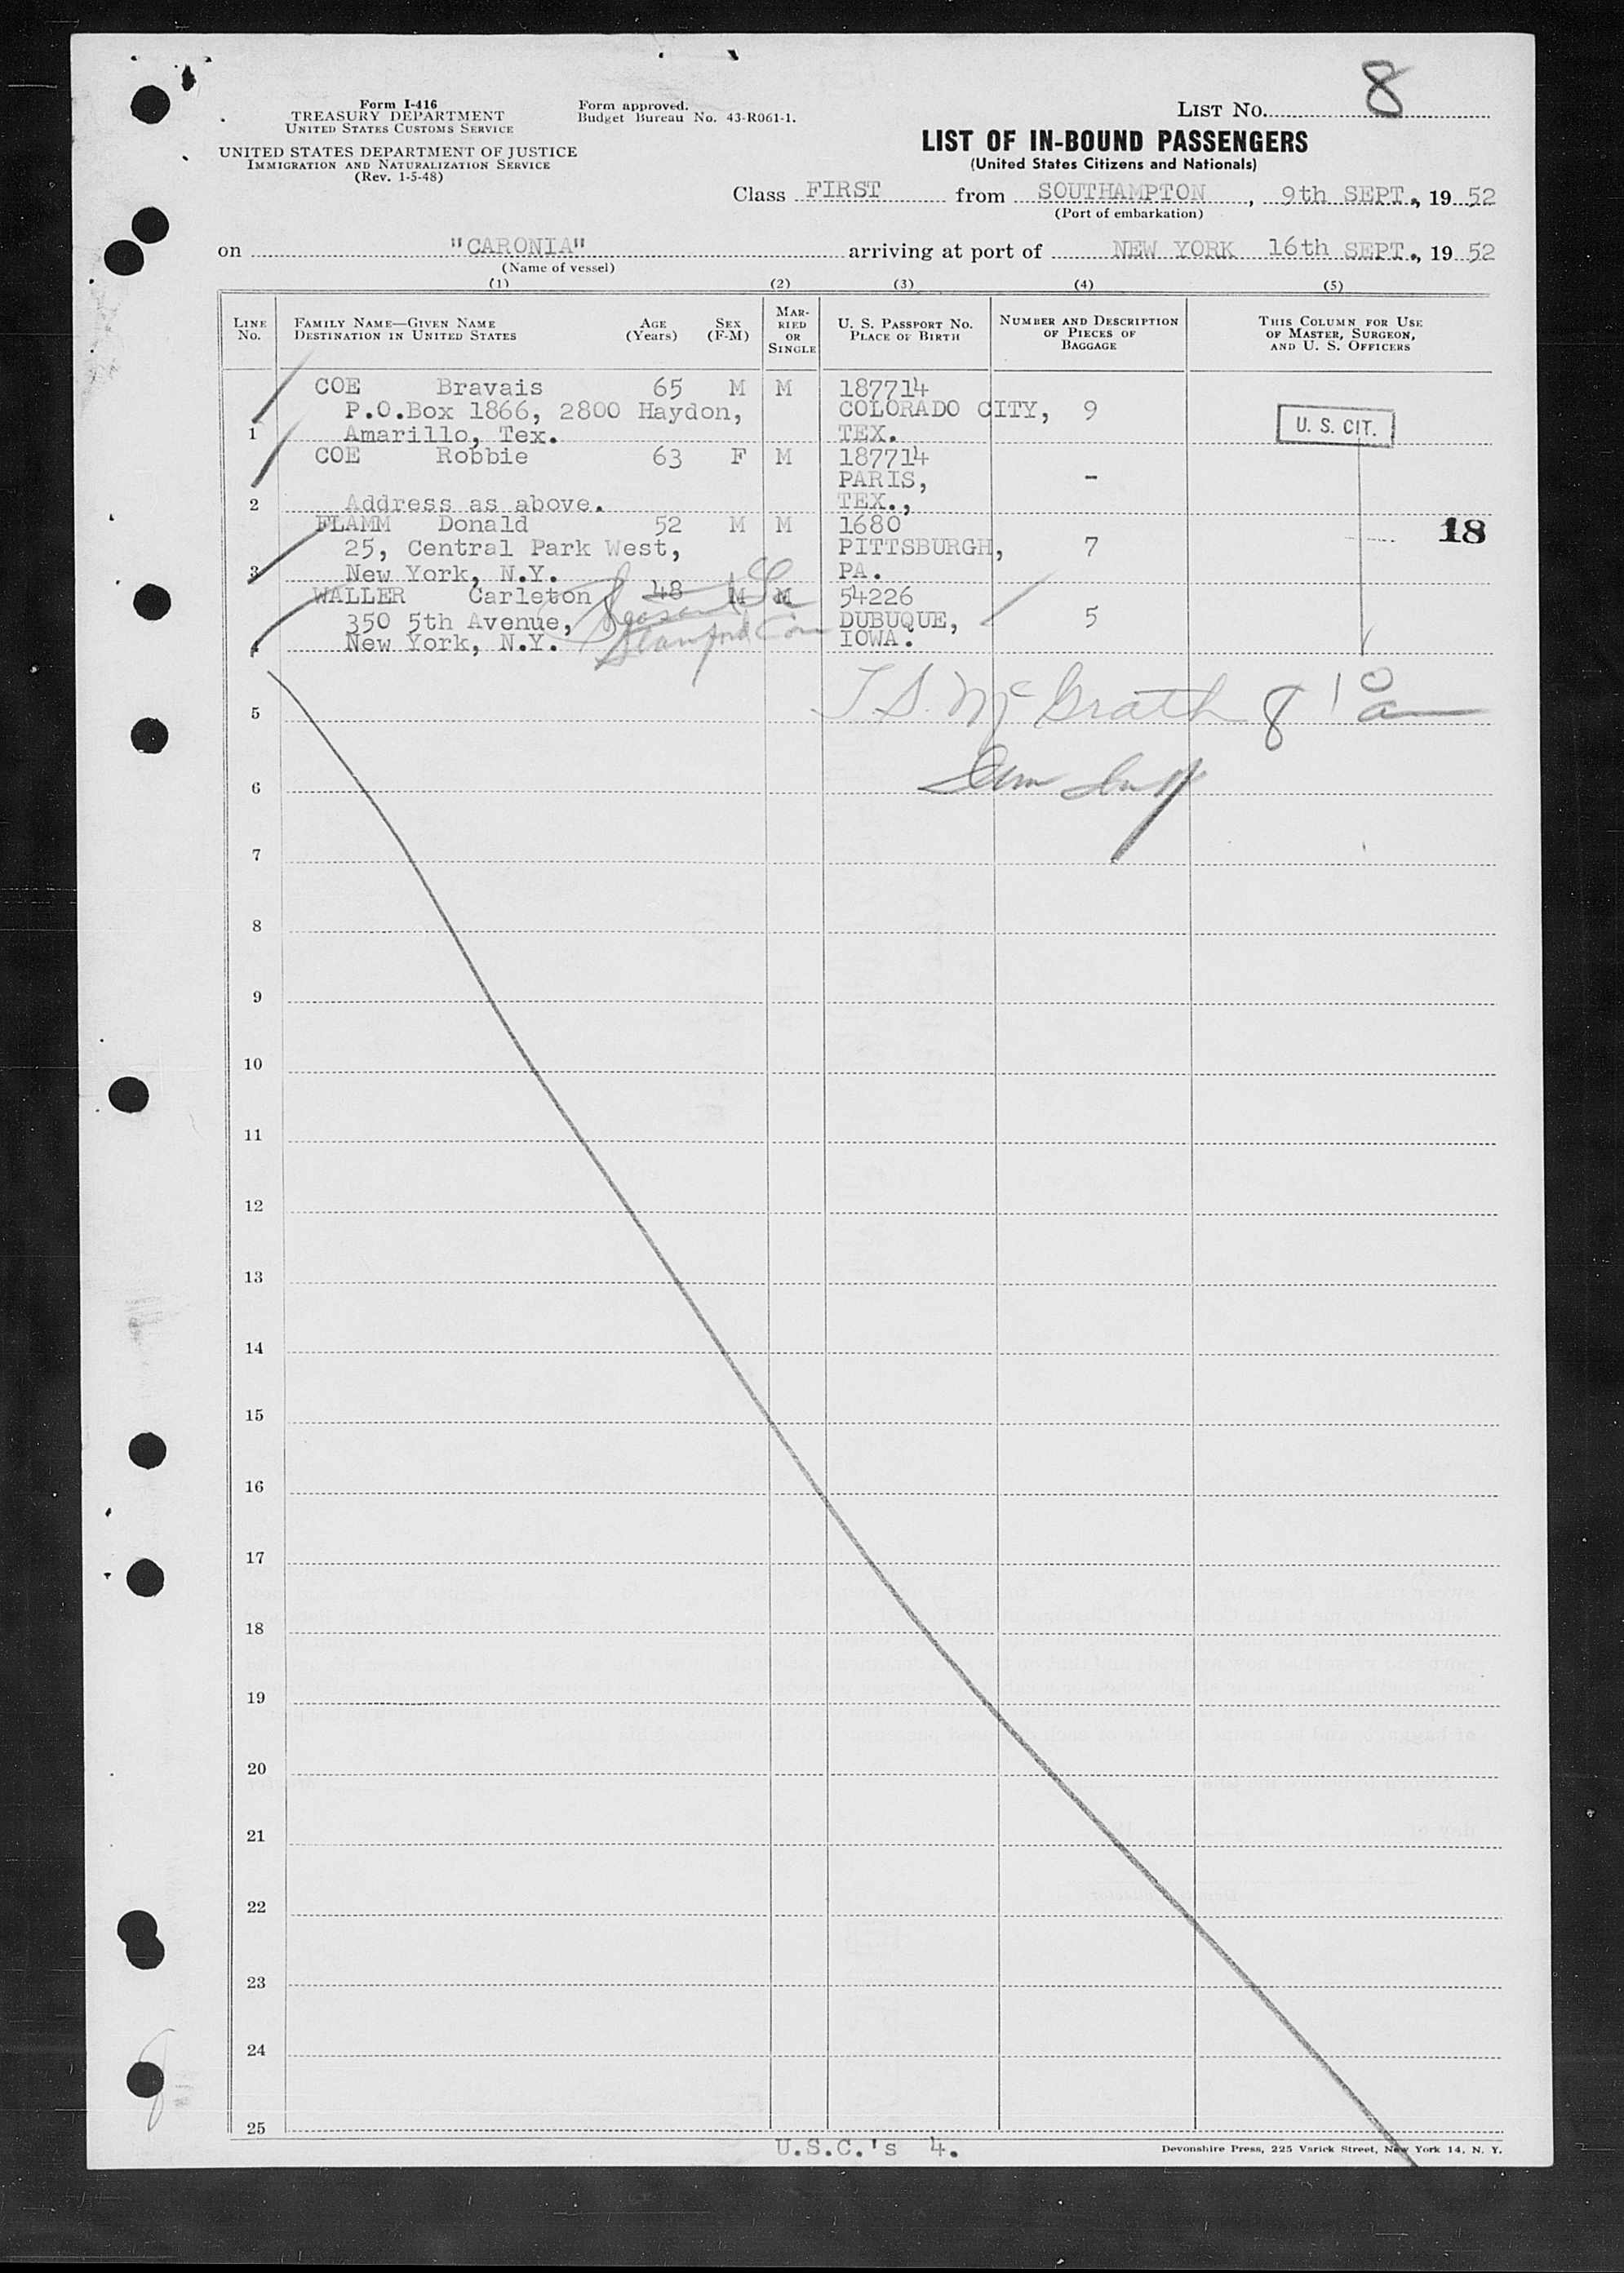 8
Form I-416
TREASURY DEPARTMENT
UNITED STATES CUSTOMS SERVICE
UNITED STATES DEPARTMENT OF JUSTICE
IMMIGRATION AND NATURALIZATION SERVICE
(Rev. 1-5-48)
Form approved.
Budget Bureau No. 43-R061-1.
LIST No.
LIST OF IN-BOUND PASSENGERS
(United States Citizens and Nationals)
Class FIRST from SOUTHAMPTON, 9th SEPT., 19 52
(Port of embarkation)
on "CARONIA" arriving at port of NEW YORK 16th SEPT., 19 52
(Name of vessel)
(1) (2) (3) (4) (5)
LINE No.
FAMILY NAME—GIVEN NAME
DESTINATION IN UNITED STATES
AGE (Years)
SEX (F-M)
MARRIED OR SINGLE
U. S. PASSPORT NO.
PLACE OF BIRTH
NUMBER AND DESCRIPTION
OF PIECES OF
BAGGAGE
THIS COLUMN FOR USE
OF MASTER, SURGEON,
AND U. S. OFFICERS
COE Bravais 65 M M 187714
P.O.Box 1866, 2800 Haydon, COLORADO CITY, 9
1 Amarillo, Tex. TEX.
U. S. CIT.
COE Robbie 63 F M 187714
PARIS, -
2 Address as above. TEX.,
FLAMM Donald 52 M M 1680
18
25, Central Park West, PITTSBURGH, 7
3 New York, N.Y. PA.
WALLER Carleton 48 M M 54226
350 5th Avenue, DUBUQUE, 5
4 New York, N.Y. IOWA.
Stamford Con
T.S. McGrath 8 10 a
5
6
7
8
9
10
11
12
13
14
15
16
17
18
19
20
21
22
23
24
25
U.S.C.'s 4.
Devonshire Press, 225 Varick Street, New York 14, N. Y.